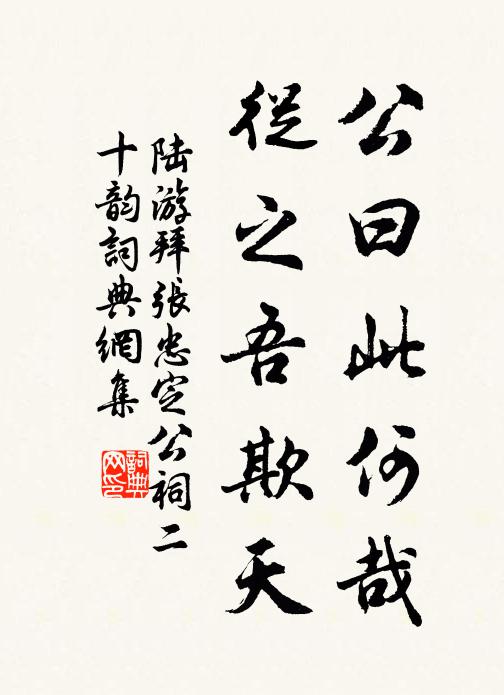 公曰此何哉
從之吾欺天
陆游拜張忠定公祠二
十韵詞典網集
詞典
网印